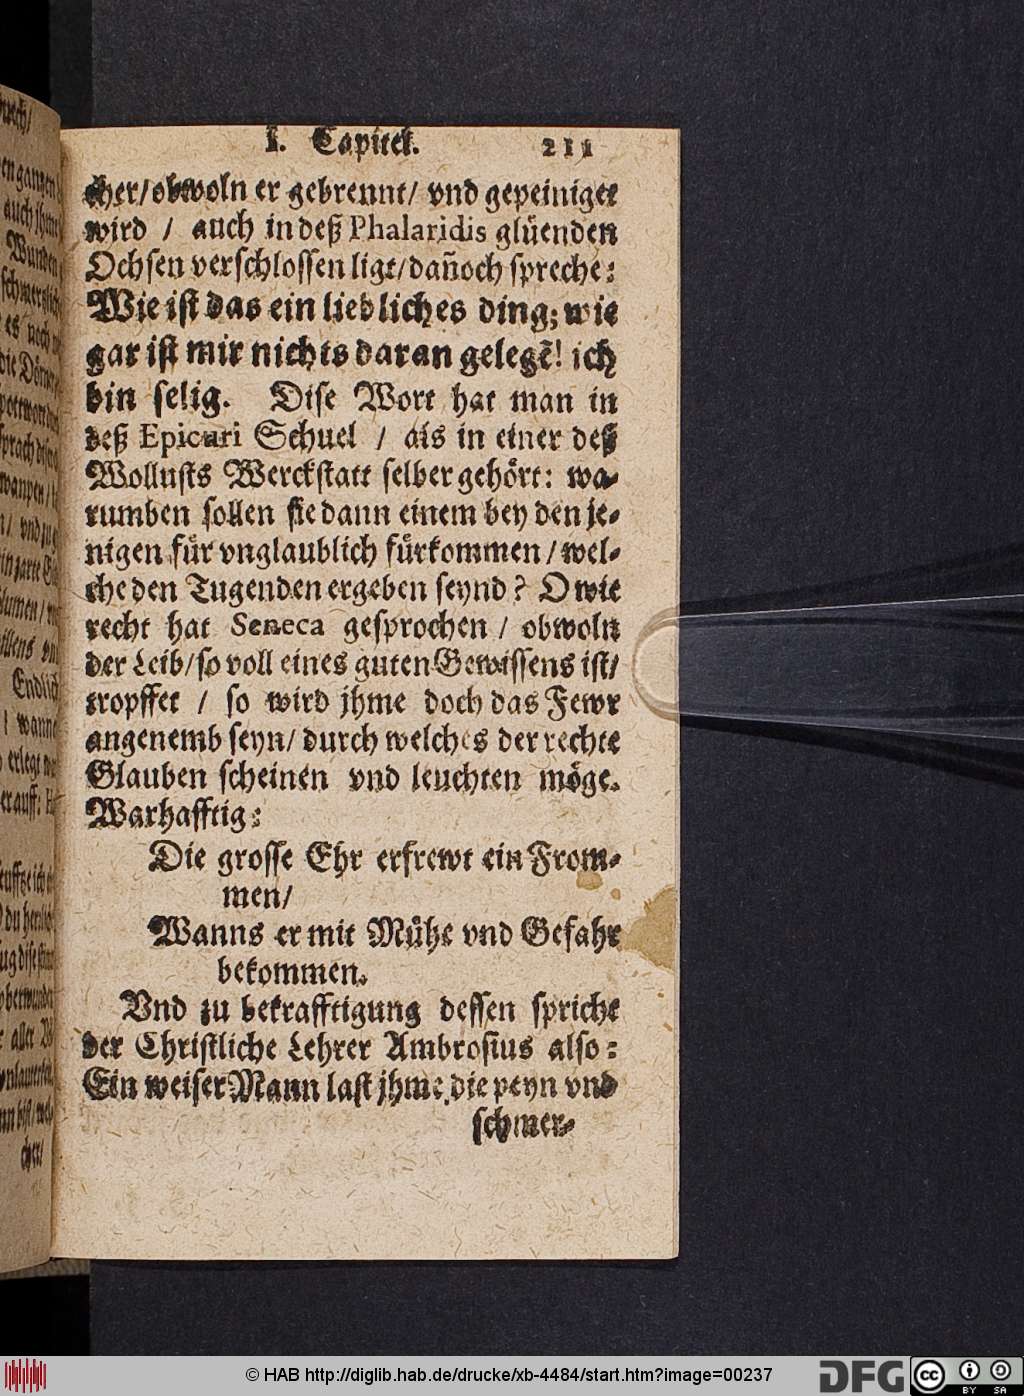 I. Capitel. 211
cher/obwoln er gebrennt/ vnd gepeiniget
wird / auch in deß Phalaridis glüenden
Ochsen verschlossen ligt/dañoch spreche:
Wie ist das ein liebliches ding; wie
gar ist mir nichts daran gelegẽ! ich
bin selig. Dise Wort hat man in
deß Epicuri Schuel / als in einer deß
Wollusts Werckstatt selber gehört: wa-
rumben sollen sie dann einem bey den je-
nigen für vnglaublich fürkommen / wel-
che den Tugenden ergeben seynd? O wie
recht hat Seneca gesprochen / obwoln
der Leib/so voll eines guten Gewissens ist/
tropffet / so wird jhme doch das Fewr
angenemb seyn/ durch welches der rechte
Glauben scheinen vnd leuchten möge.
Warhafftig:
Die grosse Ehr erfrewt ein From-
men/
Wanns er mit Mühe vnd Gefahr
bekommen.
Vnd zu bekrafftigung dessen spricht
der Christliche Lehrer Ambrosius also:
Ein weiser Mann last jhme die peyn vnd
schmer-
© HAB http://diglib.hab.de/drucke/xb-4484/start.htm?image=00237
DFG cc BY SA